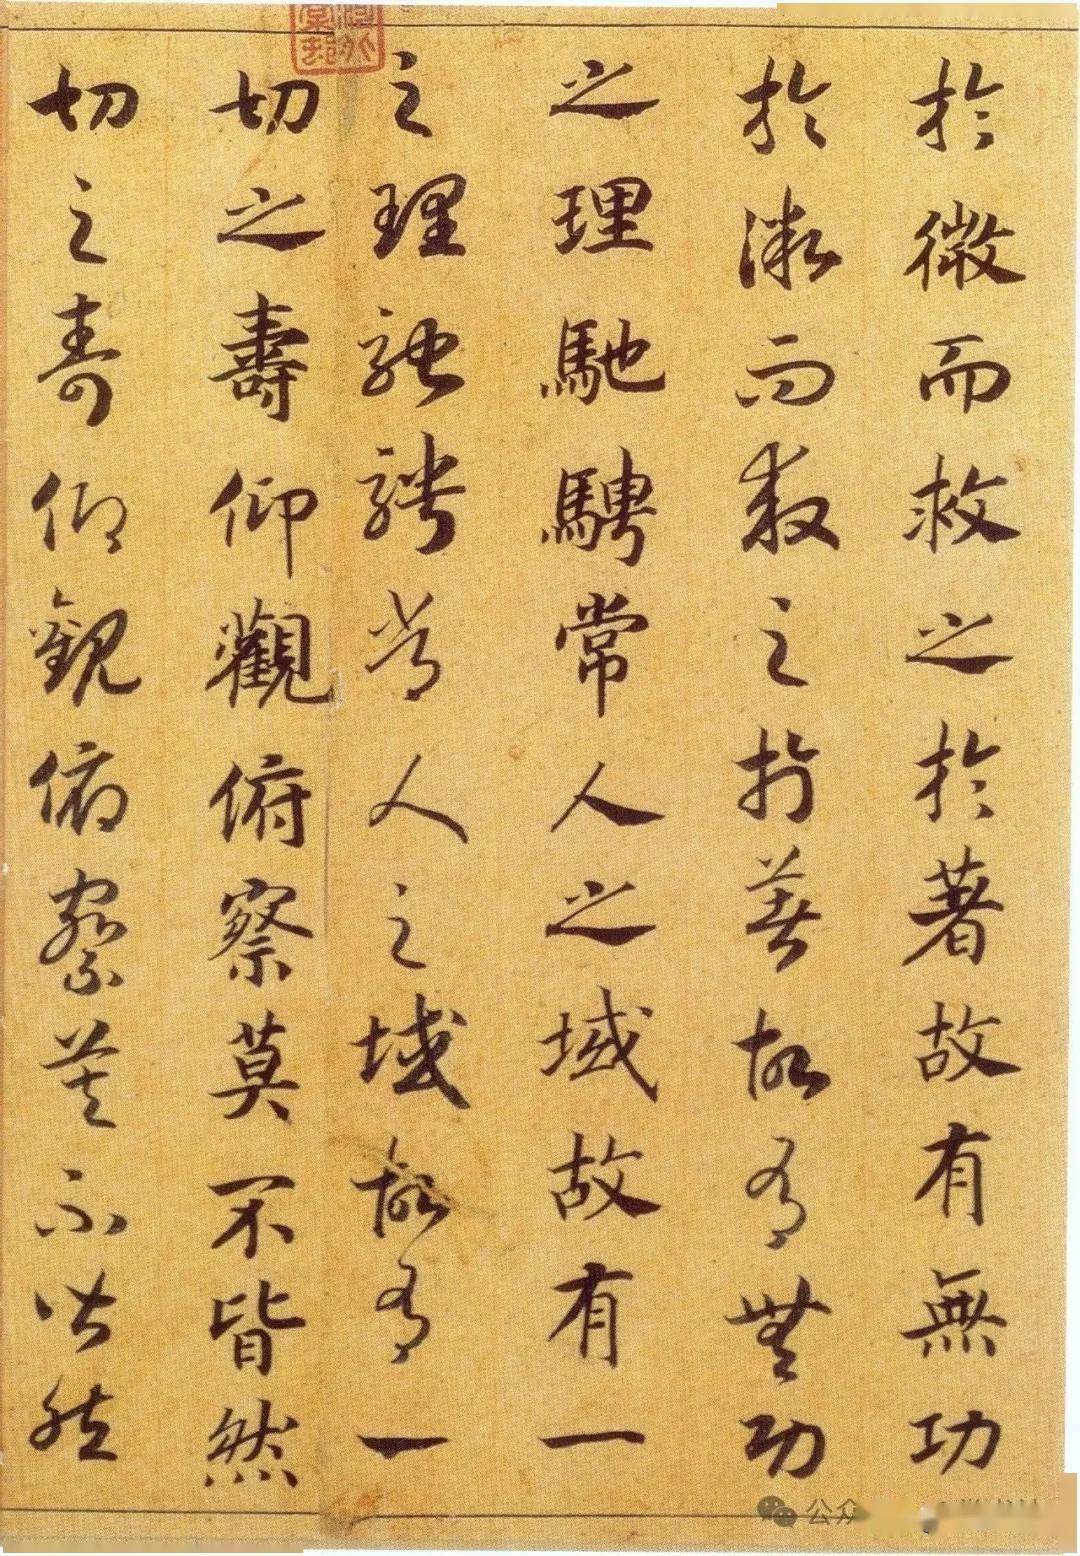 於微而救之於著故有無功
於微而救之於著故有無功
之理馳騁常人之域故有一
之理馳騁常人之域故有一
切之壽仰觀俯察莫不皆然
切之壽仰觀俯察莫不皆然
公众